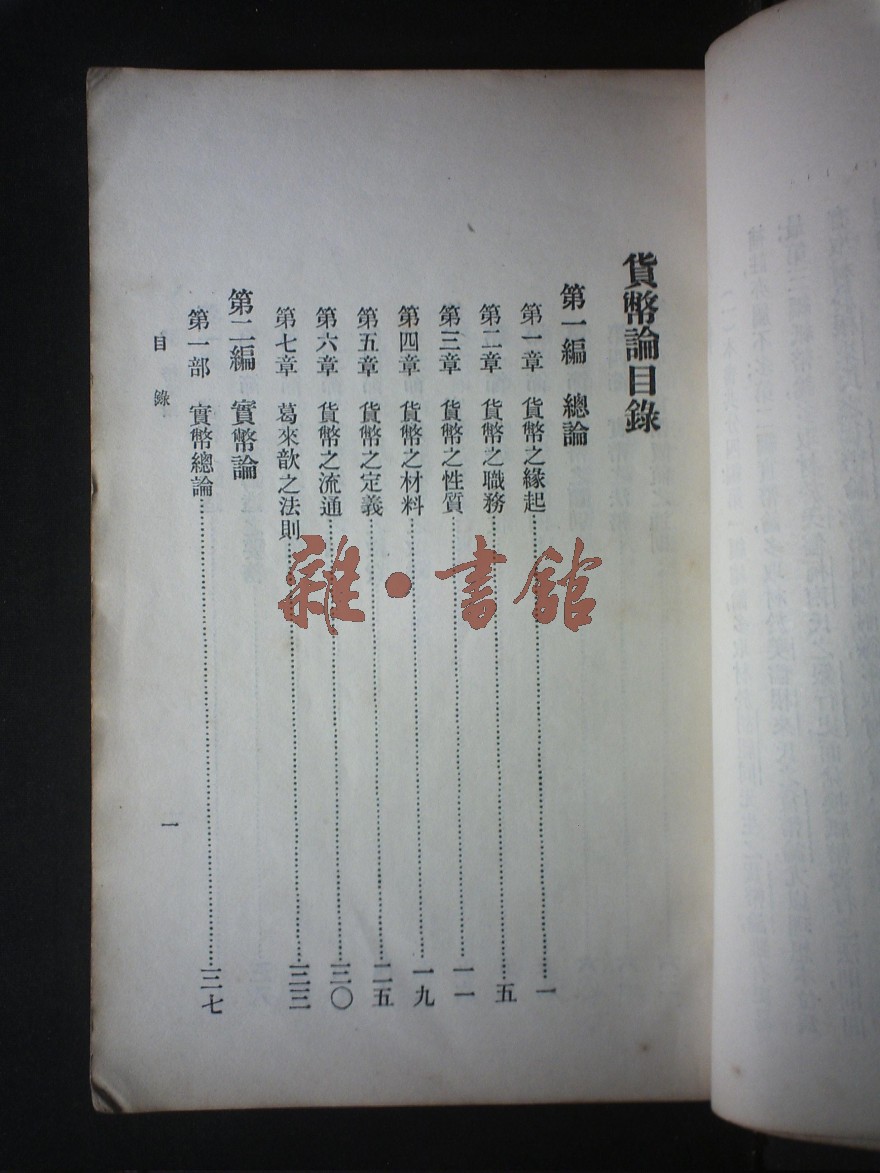 貨幣論目錄
第一編 總論
第一章 貨幣之緣起 一
第二章 貨幣之職務 五
第三章 貨幣之性質 一一
第四章 貨幣之材料 一九
第五章 貨幣之定義 二五
第六章 貨幣之流通 三〇
第七章 葛來歆之法則 三三
第二編 實幣論
第一部 實幣總論 三七
目錄
一
雜·書館